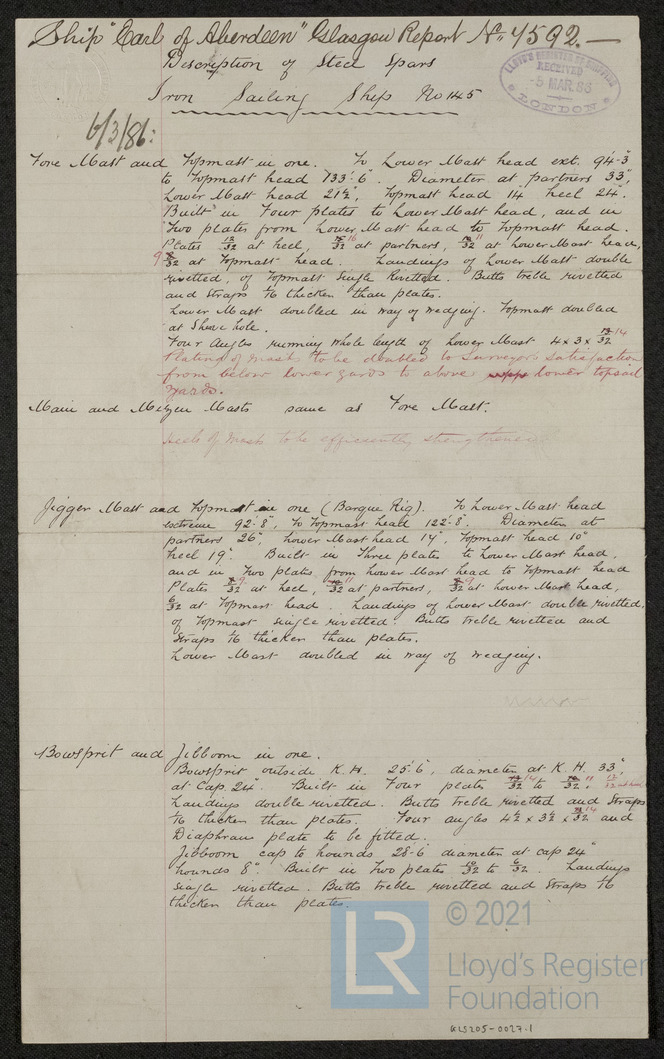 Ship "Earl of Aberdeen" Glasgow Report No 7592.—
Description of Steel Spars
LLOYD'S REGISTER OF SHIPPING
RECEIVED
-5 MAR.86
LONDON
Iron Sailing Ship No 145
6/3/86:
Fore Mast and Topmast in one. To Lower Mast head ext. 94'-3"
to Topmast head 133'.6". Diameter at partners 33",
Lower Mast head 21½", Topmast head 14" heel 24".
"Built" in Four plates to Lower Mast head, and in
Two plates from Lower Mast head to Topmast head.
Plates 12/32 at heel, 16/32 at partners, 11/32 at Lower Mast head,
9/32 at Topmast head. Landings of Lower Mast double
rivetted, of Topmast single Rivetted. Butts treble rivetted
and straps 1/16 thicker than plates.
Lower Mast doubled in way of wedging. Topmast doubled
at Sheve hole.
Four Angles running whole length of Lower Mast 4 x 3 x 14/32
Plating of Masts to be doubled to Surveyors satisfaction
from below lower yards to above lower topsail
yards.
Main and Mizen Masts same as Fore Mast.
heels of Masts to be efficiently strengthened
Jigger Mast and Topmast in one (Barque Rig). To Lower Mast head
extreme 92'-8", To Topmast head 122'.8". Diameter at
partners 26", Lower Mast head 14", Topmast head 10"
heel 19". Built in Three plates to Lower Mast head,
and in Two plates from Lower Mast head to Topmast head
Plates 9/32 at heel, 11/32 at partners, 9/32 at Lower Mast head,
6/32 at Topmast head. Landings of Lower Mast double rivetted,
of Topmast single rivetted. Butts treble rivetted and
Straps 1/16 thicker than plates.
Lower Mast doubled in way of wedging.
Bowsprit and Jibboom in one.
Bowsprit outside K.H. 25'.6", diameter at K.H. 33",
at Cap 24". Built in Four plates 14/32 to 11/32. 12/32
Landings double rivetted. Butts treble rivetted and Straps
1/16 thicker than plates. Four angles 4½ x 3½ x 14/32 and
Diaphram plate to be fitted.
Jibboom cap to hounds 28'-6" diameter at cap 24"
hounds 8". Built in Two plates 10/32 to 6/32. Landings
single rivetted. Butts treble rivetted and Straps 1/16
thicker than plates.
LR
© 2021
Lloyd's Register
Foundation
GLS205-0027.1